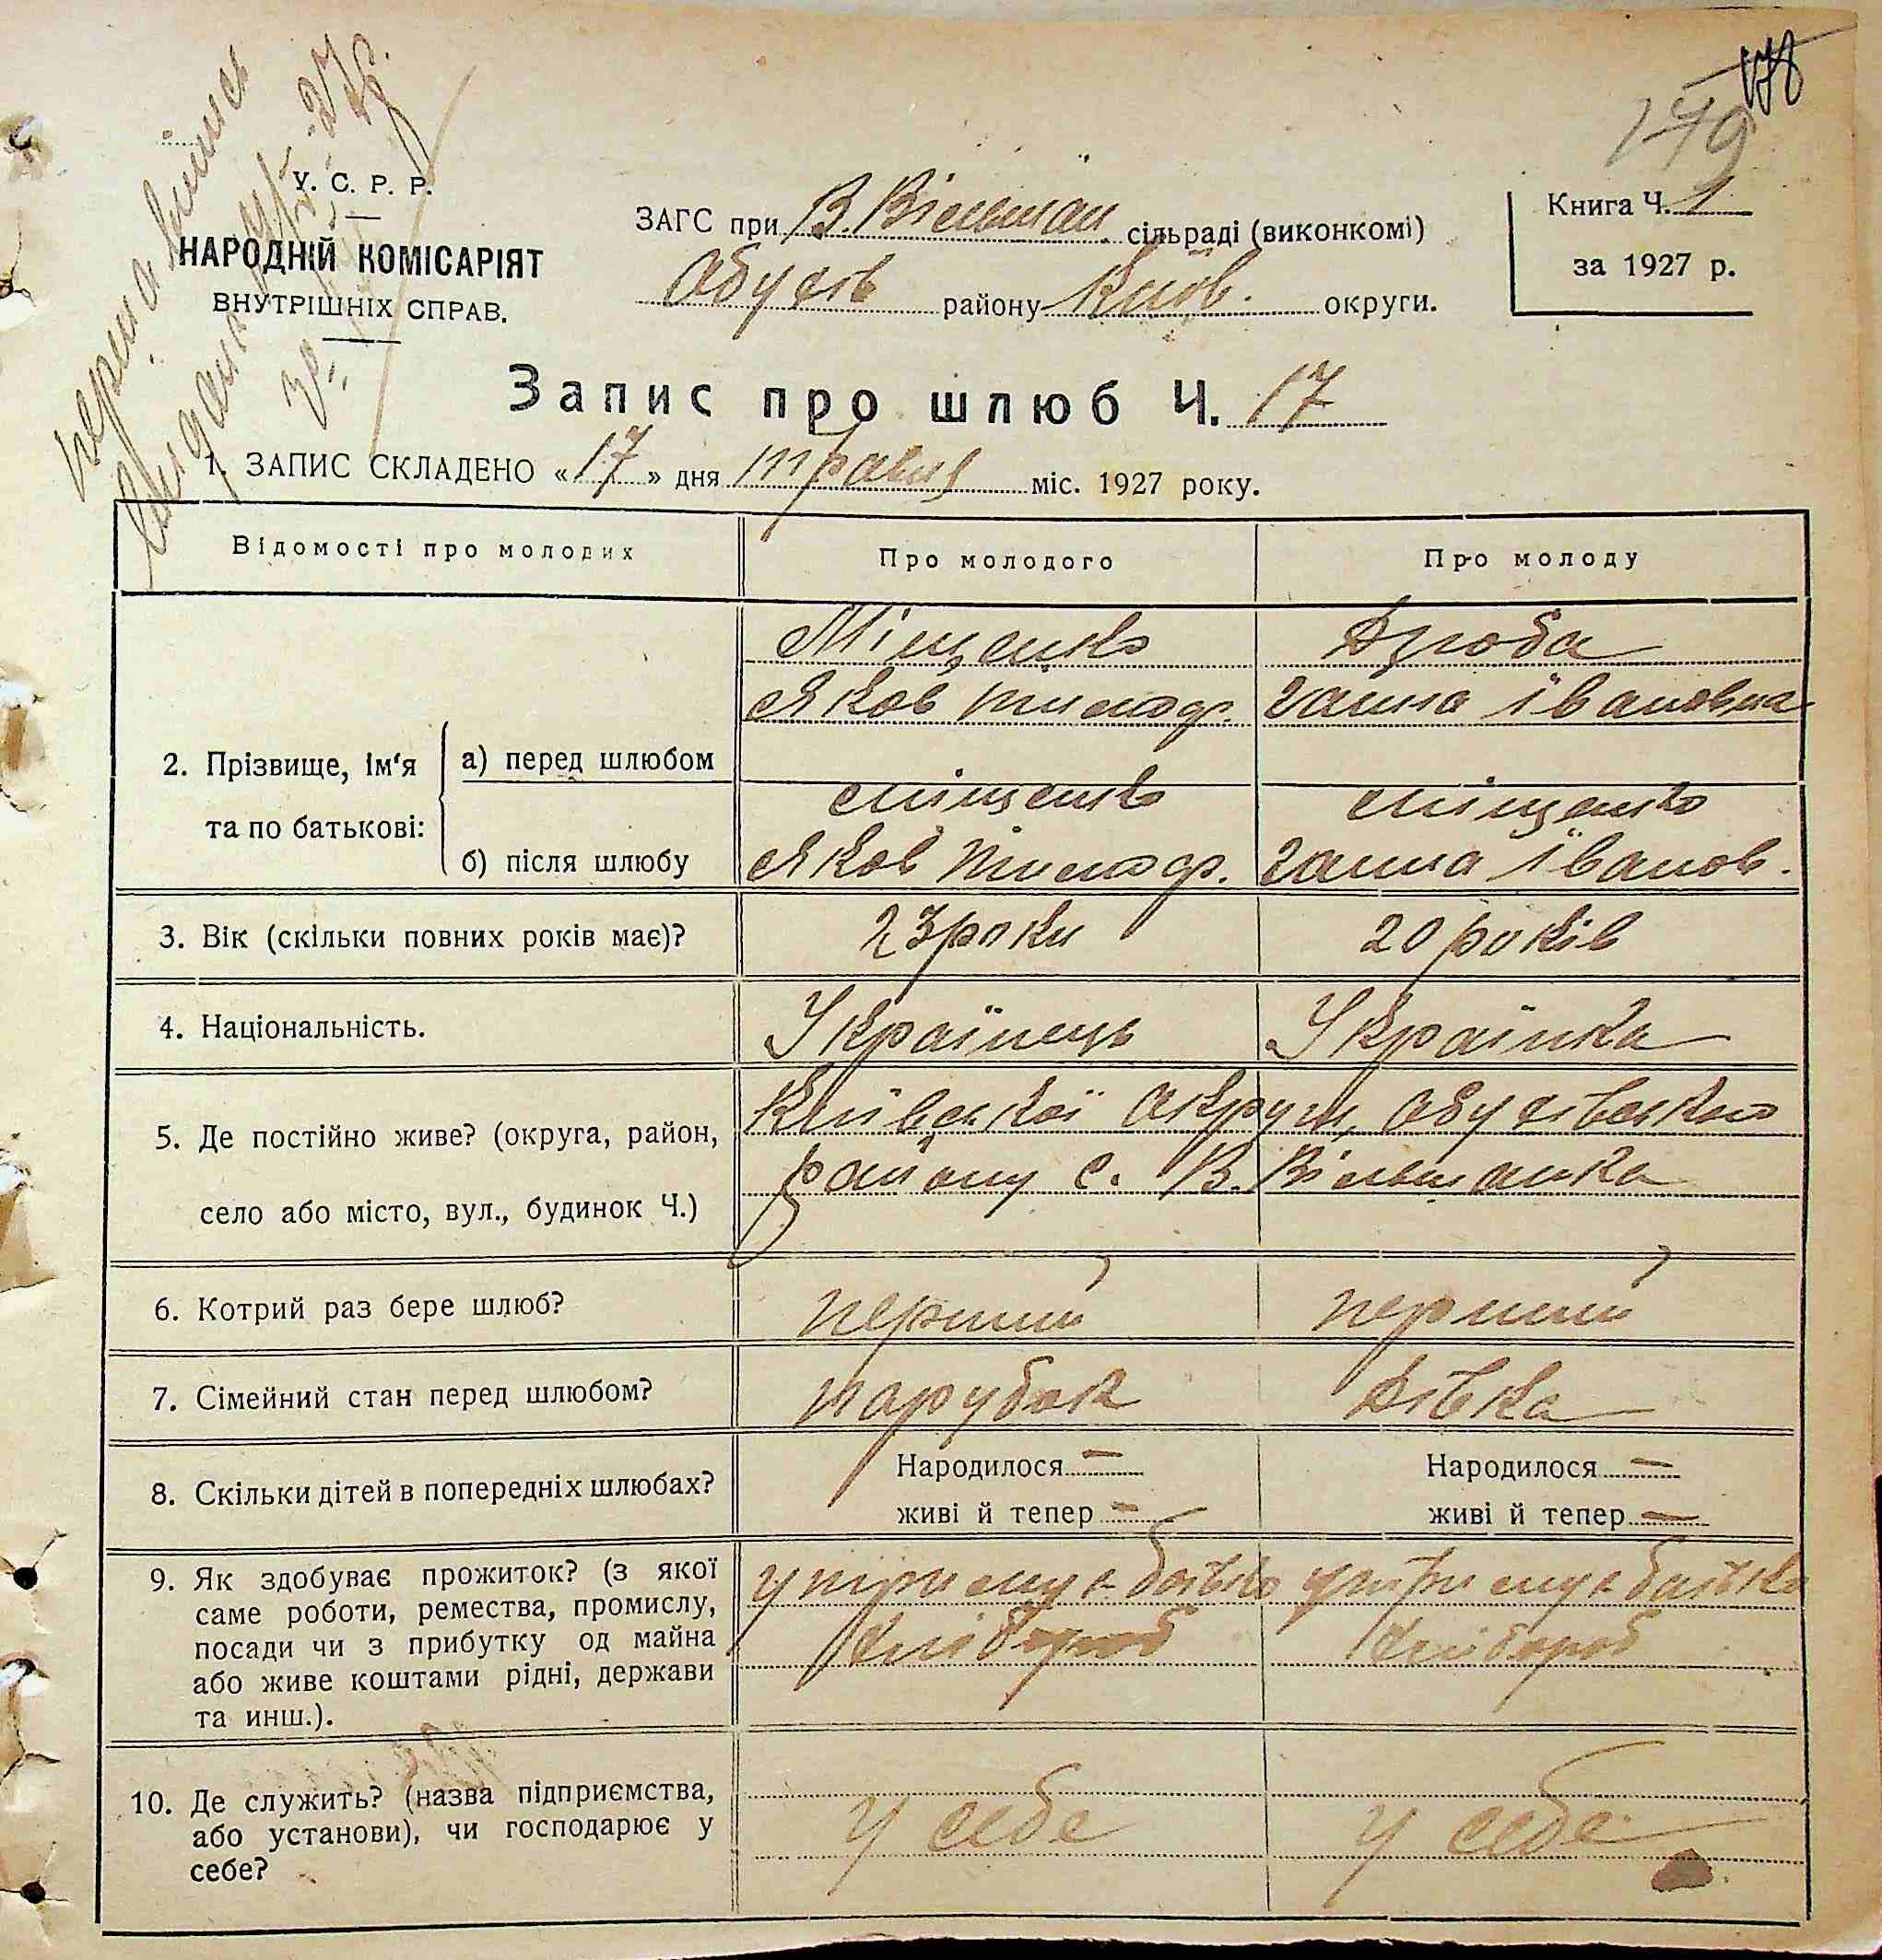 178
179
У. С. Р. Р.
НАРОДНІЙ КОМІСАРІЯТ
ВНУТРІШНІХ СПРАВ.
перша випись
видана
27р.
ЗАГС при В. Вільшан. сільраді (виконкомі)
Обухів району Київ. округи.
Книга Ч. 1
за 1927 р.
Запис про шлюб Ч. 17
1. ЗАПИС СКЛАДЕНО «17» дня травня міс. 1927 року.
Відомості про молодих
Про молодого
Про молоду
2. Прізвище, ім'я
та по батькові:
а) перед шлюбом
Міщенко
Яков Тимоф.
Дзюба
Ганна Івановна
б) після шлюбу
Міщенко
Яков Тимоф.
Міщенко
Ганна Іванов.
3. Вік (скільки повних років має)?
23 роки
20 років
4. Національність.
Українець
Українка
5. Де постійно живе? (округа, район,
село або місто, вул., будинок Ч.)
Київської округи, Обухівсько
району с. В. Вільшанка
6. Котрий раз бере шлюб?
перший
перший
7. Сімейний стан перед шлюбом?
парубок
Дівка
8. Скільки дітей в попередніх шлюбах?
Народилося —
живі й тепер —
Народилося —
живі й тепер —
9. Як здобуває прожиток? (з якої
саме роботи, ремества, промислу,
посади чи з прибутку од майна
або живе коштами рідні, держави
та инш.).
утриму є батько
хлібороб
утриму є батько
хлібороб
10. Де служить? (назва підприємства,
або установи), чи господарює у
себе?
у себе
у себе